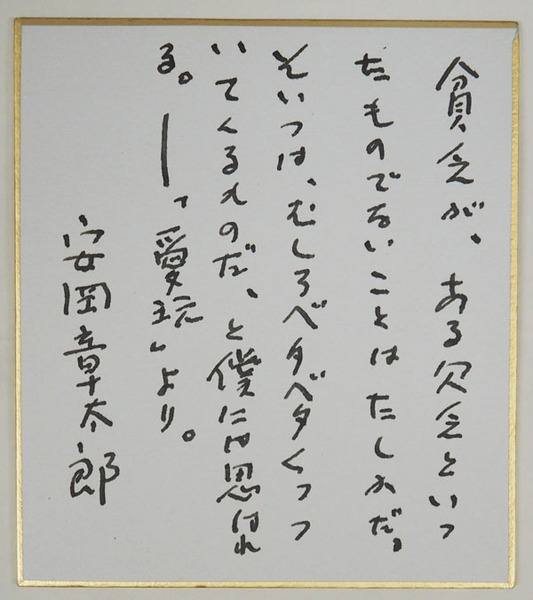 貧乏が、ある欠乏といっ
たものでないことはたしかだ。
そいつは、むしろベタベタくっつ
いてくるものだ、と僕には思はれ
る。―「愛玩」より。
安岡章太郎